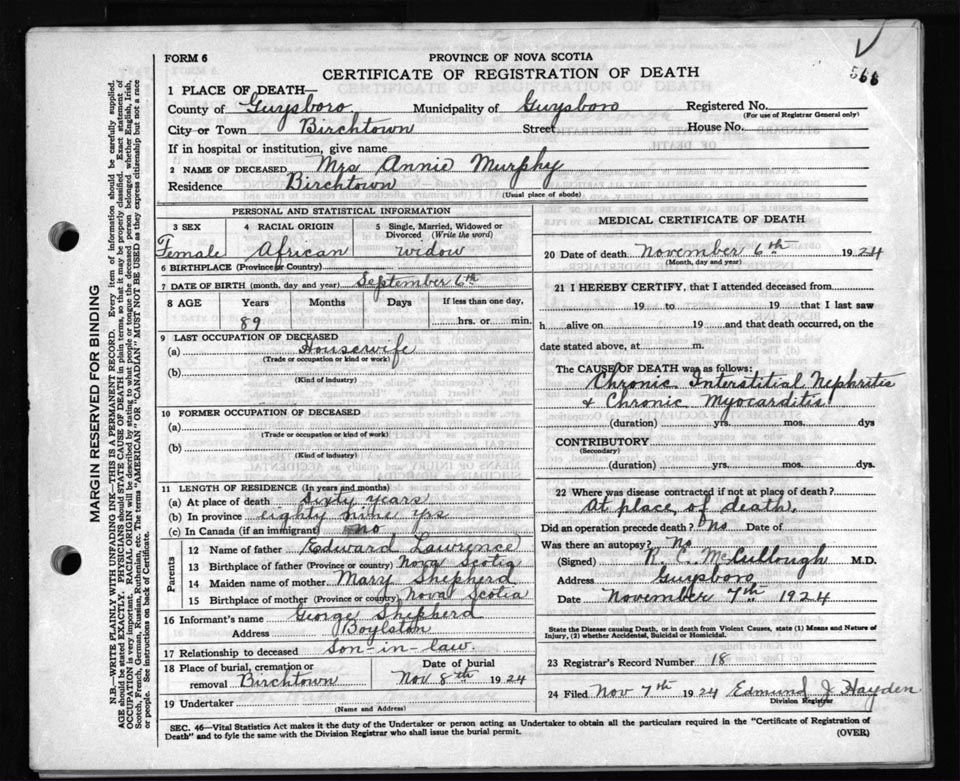 FORM 6
PROVINCE OF NOVA SCOTIA
CERTIFICATE OF REGISTRATION OF DEATH
568
1 PLACE OF DEATH—
County of Guysboro Municipality of Guysboro Registered No.
(For use of Registrar General only)
City or Town Birchtown Street House No.
If in hospital or institution, give name
2 NAME OF DECEASED Mrs Annie Murphy
Residence Birchtown
(Usual place of abode)
PERSONAL AND STATISTICAL INFORMATION
3 SEX 4 RACIAL ORIGIN 5 Single, Married, Widowed or Divorced (Write the word)
Female African widow
6 BIRTHPLACE (Province or Country)
7 DATE OF BIRTH (month, day and year) September 6th
8 AGE Years Months Days If less than one day,
89 hrs. or min.
9 LAST OCCUPATION OF DECEASED
(a) Housewife
(Trade or occupation or kind or work)
(b)
(Kind of industry)
10 FORMER OCCUPATION OF DECEASED
(a)
(Trade or occupation or kind of work)
(b)
(Kind of industry)
11 LENGTH OF RESIDENCE (In years and months)
(a) At place of death Sixty years
(b) In province eighty nine yrs
(c) In Canada (if an immigrant) no
Parents
12 Name of father Edward Lawrence
13 Birthplace of father (Province or country) Nova Scotia
14 Maiden name of mother Mary Shepherd
15 Birthplace of mother (Province or country) Nova Scotia
16 Informant's name George Shepherd
Address Boylston
17 Relationship to deceased Son-in-law.
18 Place of burial, cremation or removal Birchtown
Date of burial
Nov 8th 1924
19 Undertaker
(Name and Address)
MEDICAL CERTIFICATE OF DEATH
20 Date of death November 6th 1924
(Month, day and year)
21 I HEREBY CERTIFY, that I attended deceased from
19 to 19 that I last saw
h alive on 19 and that death occurred, on
date stated above, at m.
The CAUSE OF DEATH was as follows:
Chronic Interstitial Nephritis
& Chronic Myocarditis
(duration) yrs. mos. dys
CONTRIBUTORY
(Secondary)
(duration) yrs. mos. dys.
22 Where was disease contracted if not at place of death?
At place of death.
Did an operation precede death? No Date of
Was there an autopsy? No
(Signed) R. E. McCullough M.D.
Address Guysboro
Date November 7th 1924
State the Disease causing Death, or in death from Violent Causes, state (1) Means and Nature of
Injury, (2) whether Accidental, Suicidal or Homicidal.
23 Registrar's Record Number 18
24 Filed Nov 7th 1924 Edmund J Hayden
Division Registrar
SEC. 46—Vital Statistics Act makes it the duty of the Undertaker or person acting as Undertaker to obtain all the particulars required in the "Certificate of Registration of
Death" and to fyle the same with the Division Registrar who shall issue the burial permit.
(OVER)
MARGIN RESERVED FOR BINDING
N.B.—WRITE PLAINLY WITH UNFADING INK—THIS IS A PERMANENT RECORD. Every item of information should be carefully supplied.
AGE should be stated EXACTLY. PHYSICIANS should STATE CAUSE OF DEATH in plain terms, so that it may be properly classified. Exact statement of
OCCUPATION is very important. RACIAL ORIGIN will be described by stating to what people or tongue the deceased person belonged, whether English, Irish,
Scotch, French, German, Russian, Ruthenian, etc. The terms "AMERICAN" or "CANADIAN" MUST NOT BE USED as they express citizenship but not a race
or people. See instructions on back of Certificate.